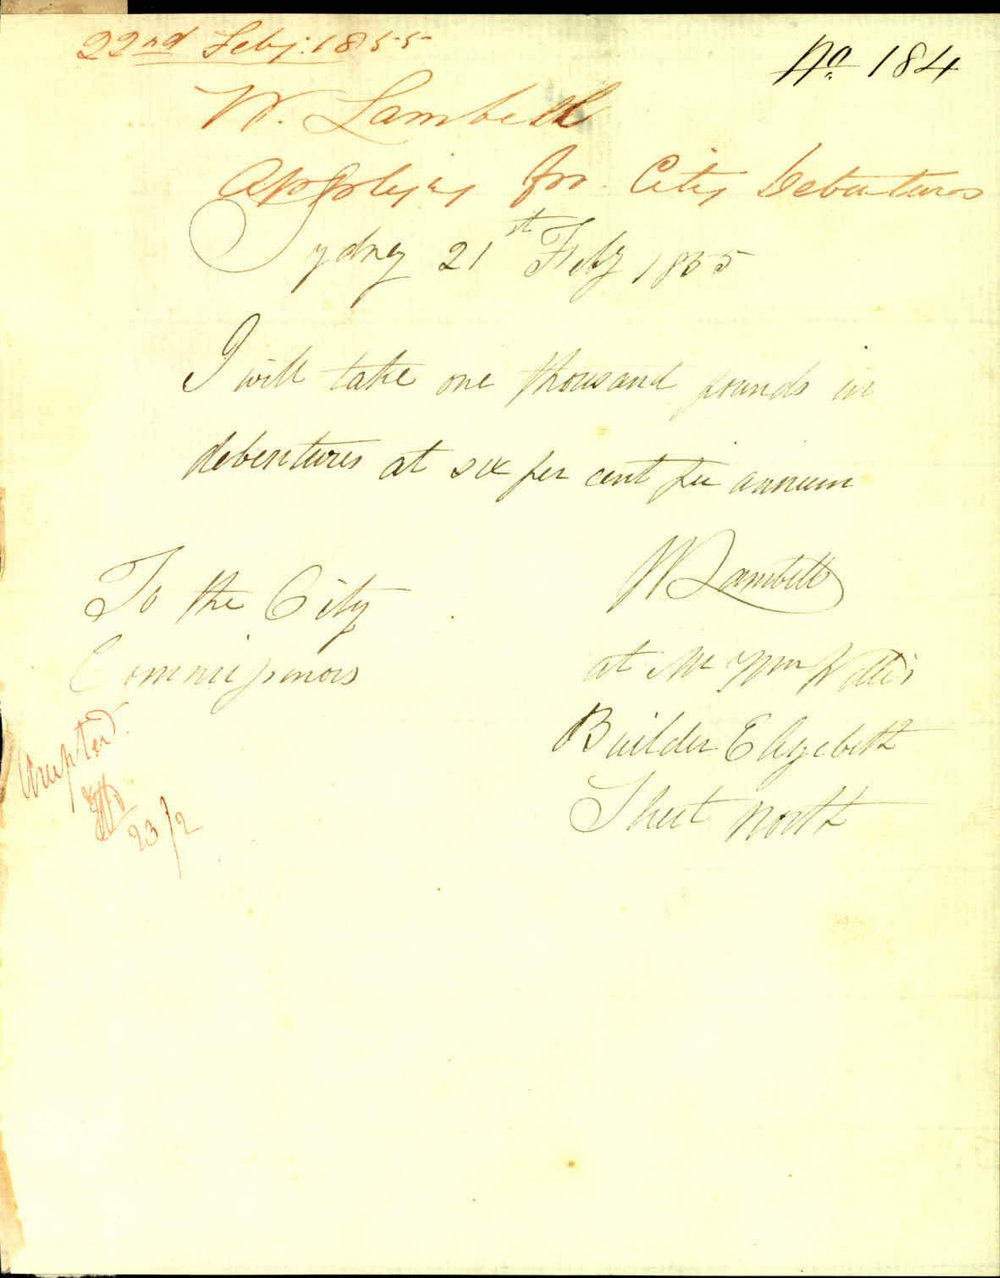 22nd Feby: 1855
No. 184
W. Lambell
Applying for City Debentures
Sydney 21st Feby 1855
I will take one thousand pounds in
debentures at six per cent per annum
W Lambell
To the City
Commissioners
at Mr Wm
Builder Elizabeth
Street North
Accepted
23/2